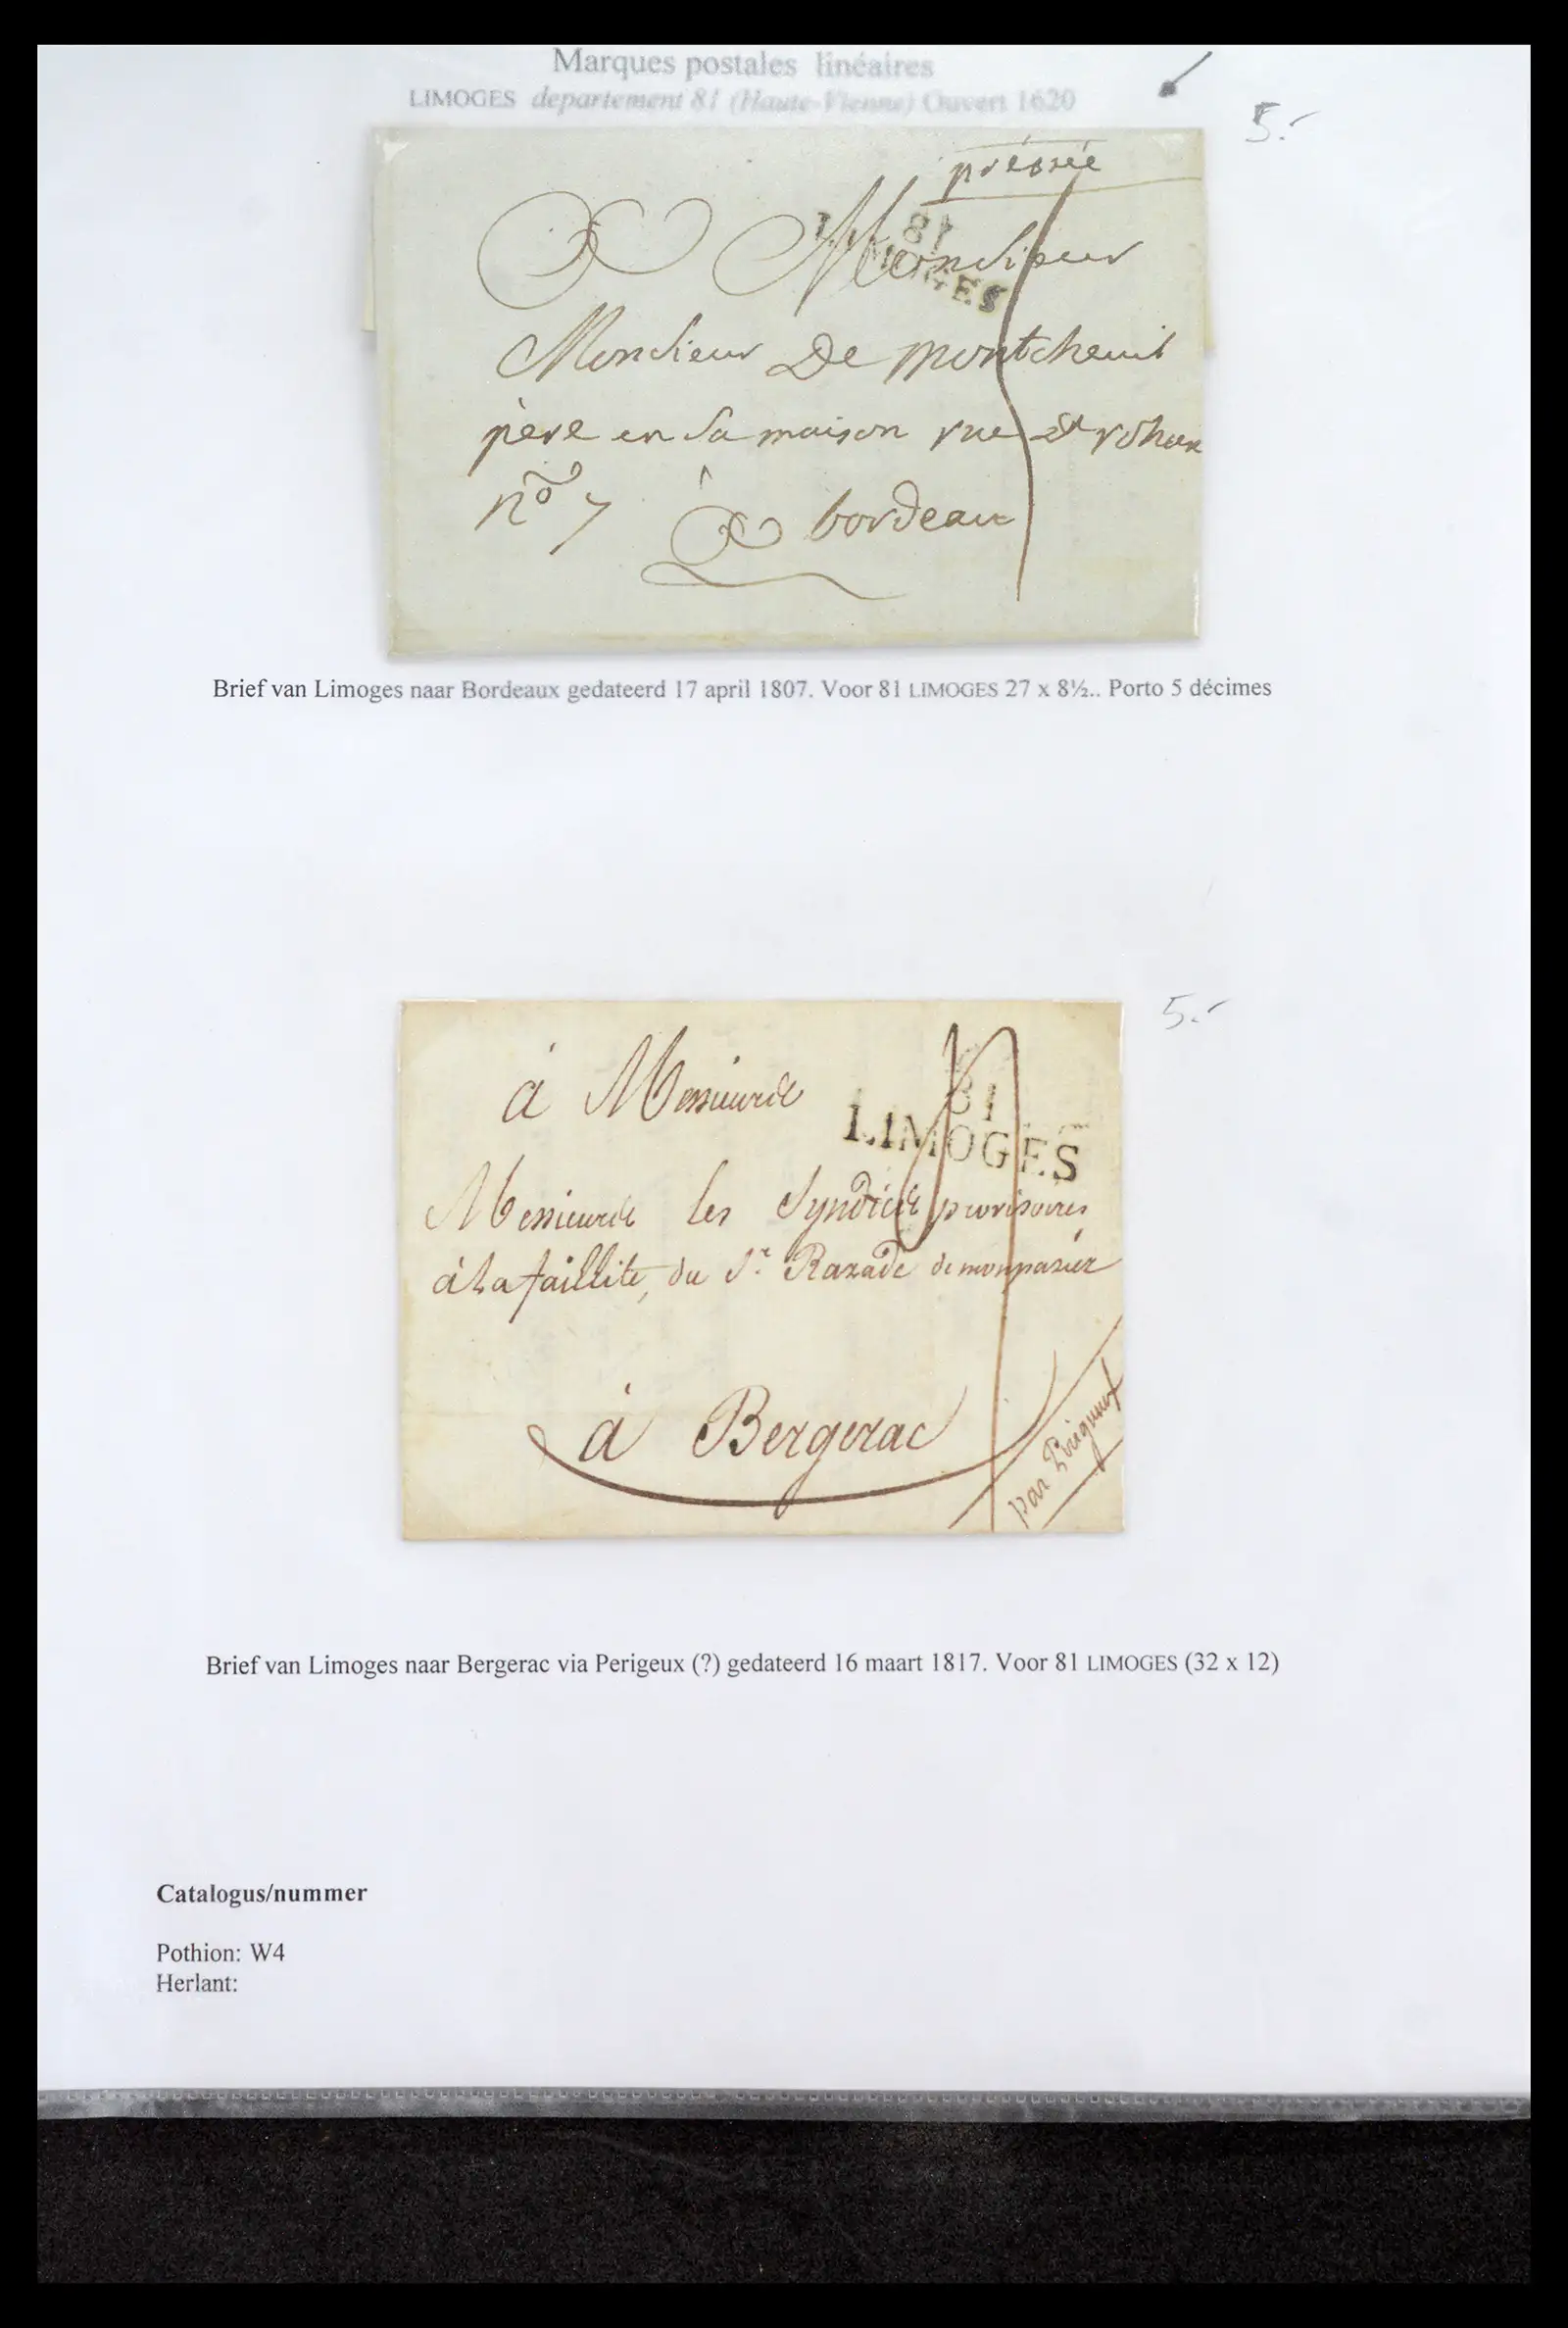 Marques postales linéaires
LIMOGES departement 81 (Haute-Vienne) Ouvert 1620
5.-
préssée
81
LIMOGES
Monsieur
Monsieur De montcheuil
père en sa maison rue
nº 7 à bordeau
Brief van Limoges naar Bordeaux gedateerd 17 april 1807. Voor 81 LIMOGES 27 x 8½.. Porto 5 décimes
5.-
à Messieurs
81
LIMOGES
Messieurs les Syndics provisoires
à la faillite, du Sr. Razade de monpazier
à Bergerac
par Périgueux
Brief van Limoges naar Bergerac via Perigeux (?) gedateerd 16 maart 1817. Voor 81 LIMOGES (32 x 12)
Catalogus/nummer
Pothion: W4
Herlant: